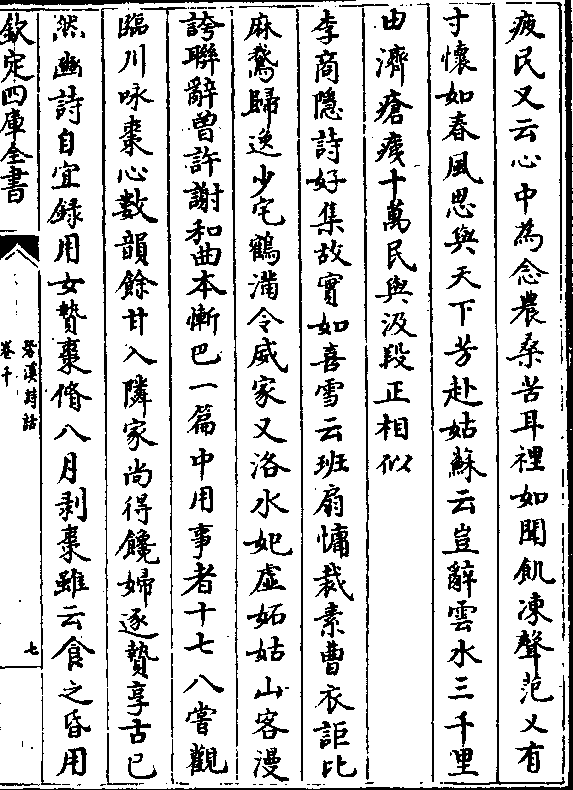 疲民又云心中為念農桑苦耳裡如聞飢凍聲范又有
寸懷如春風思與天下芳赴姑蘇云豈辭雲水三千里
由濟瘡痍十萬民與汲段正相似
李商隐詩好集故實如喜雪云班扇慵裁素曹衣詎比
麻鵞歸逸少宅鶴滿令威家又洛水妃虛妬姑山客漫
誇聯辭曽許謝和曲本慚巴一篇中用事者十七八嘗觀
臨川咏棗止數韻餘甘入隣家尚得饞婦逐贄享古已
然豳詩自宜録用女贄棗脩八月剥棗雖云食之昏用
欽定四庫全書
䂬溪詩話
卷十
七